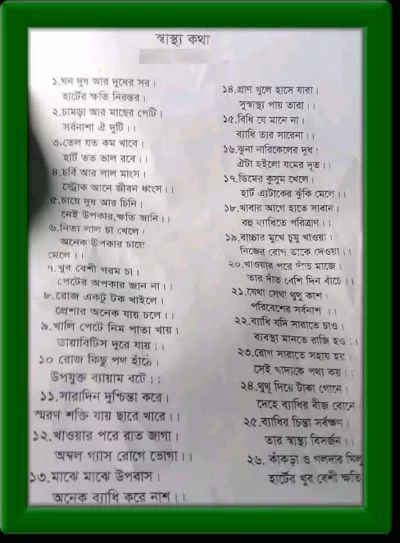 স্বাস্থ্য কথা
১.ঘন দুধ আর দুধের সর।
হার্টের ক্ষতি নিরন্তর।
২.চামড়া আর মাছের পেটি।
সর্বনাশা ঐ দুটি।।
৩.তেল যত কম খাবে।
হার্ট তত ভাল রবে।।
৪.চর্বি আর লাল মাংস।
স্ট্রোক আনে জীবন ধ্বংস।।
৫.চায়ে দুধ আর চিনি।
নেই উপকার,ক্ষতি জানি।।
৬.নিত্য লাল চা খেলে।
অনেক উপকার চায়ে
মেলে।।
৭.খুব বেশী গরম চা।
পেটের অপকার জান না।।
৮.রোজ একটু টক খাইলে।
প্রেশার অনেক যায় চলে।।
৯.খালি পেটে নিম পাতা খায়।
ডায়াবিটিস দূরে যায়।।
১০ রোজ কিছু পথ হাঁটে।
উপযুক্ত ব্যায়াম বটে।।
১১.সারাদিন দুশ্চিন্তা করে।
স্মরণ শক্তি যায় ছারে খারে।।
১২.খাওয়ার পরে রাত জাগা।
অম্বল গ্যাস রোগে ভোগা।।
১৩.মাঝে মাঝে উপবাস।
অনেক ব্যাধি করে নাশ।।
১৪.প্রাণ খুলে হাসে যারা।
সুস্বাস্থ্য পায় তারা।।
১৫.বিধি যে মানে না।
ব্যাধি তার সারেনা।।
১৬.ঝুনা নারিকেলের দুধ।
ঐটা হইলো যমের দূত।।
১৭.ডিমের কুসুম খেলে।
হার্ট এ্যাটাকের ঝুঁকি মেলে।।
১৮.খাবার আগে হাতে সাবান।
বহু ব্যাধিতে পরিত্রাণ।।
১৯.বাচ্চার মুখে চুমু খাওয়া।
নিজের রোগ তাকে দেওয়া।।
২০.খাওয়ার পরে দাঁত মাজে।
তার দাঁত বেশি দিন বাঁচে।।
২১.যেথা সেথা থুথু কাশ।
পরিবেশের সর্বনাশ।।
২২.ব্যাধি যদি সারাতে চাও।
ব্যবস্থা মানতে রাজি হও।।
২৩.রোগ সারাতে সহায় হয়।
সেই খাদ্যকে পথ্য কয়।।
২৪.থুথু দিয়ে টাকা গোনে।
দেহে ব্যাধির বীজ বোনে।
২৫.ব্যাধির চিন্তা সর্বক্ষণ।
তার স্বাস্থ্য বিসর্জন।।
২৬. কাঁকড়া ও গলদার ঘিলু
হার্টের খুব বেশী ক্ষতি